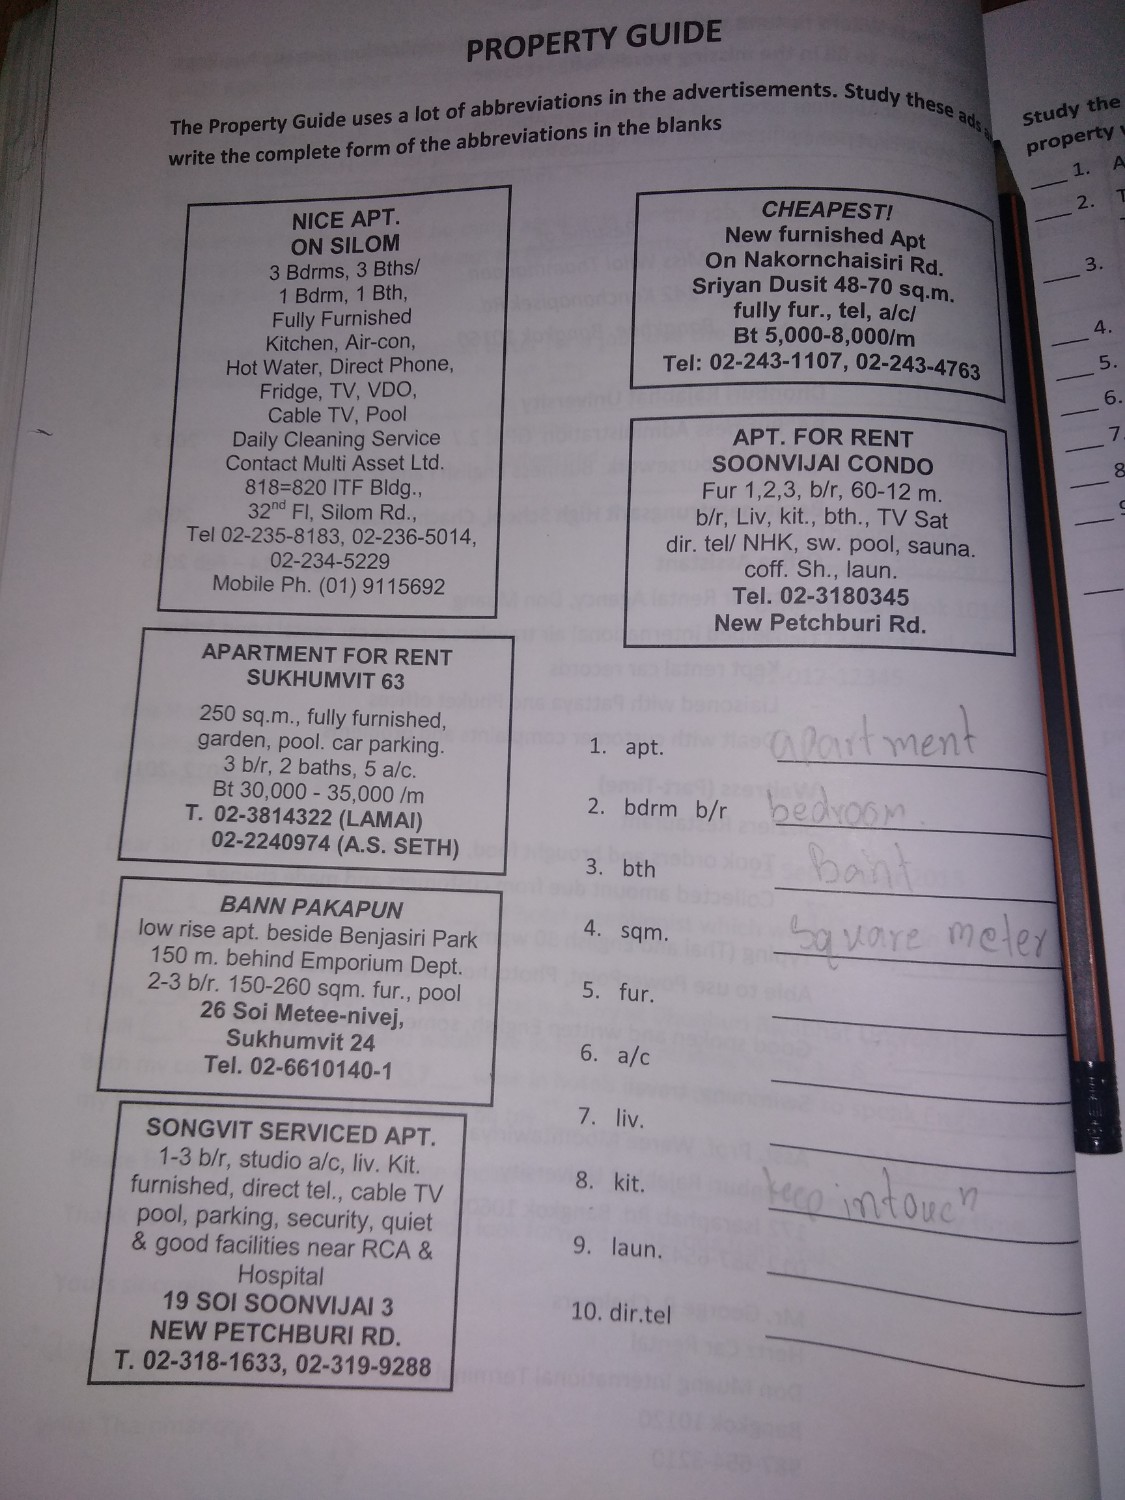 PROPERTY GUIDE
The Property Guide uses a lot of abbreviations in the advertisements. Study these ads
write the complete form of the abbreviations in the blanks
NICE APT.
ON SILOM
3 Bdrms, 3 Bths/
1 Bdrm, 1 Bth,
Fully Furnished
Kitchen, Air-con,
Hot Water, Direct Phone,
Fridge, TV, VDO,
Cable TV, Pool
Daily Cleaning Service
Contact Multi Asset Ltd.
818=820 ITF Bldg.,
32nd Fl, Silom Rd.,
Tel 02-235-8183, 02-236-5014,
02-234-5229
Mobile Ph. (01) 9115692
APARTMENT FOR RENT
SUKHUMVIT 63
250 sq.m., fully furnished,
garden, pool. car parking.
3 b/r, 2 baths, 5 a/c.
Bt 30,000 - 35,000 /m
T. 02-3814322 (LAMAI)
02-2240974 (A.S. SETH)
BANN PAKAPUN
low rise apt. beside Benjasiri Park
150 m. behind Emporium Dept.
2-3 b/r. 150-260 sqm. fur., pool
26 Soi Metee-nivej,
Sukhumvit 24
Tel. 02-6610140-1
SONGVIT SERVICED APT.
1-3 b/r, studio a/c, liv. Kit.
furnished, direct tel., cable TV
pool, parking, security, quiet
& good facilities near RCA &
Hospital
19 SOI SOONVIJAI 3
NEW PETCHBURI RD.
T. 02-318-1633, 02-319-9288
CHEAPEST!
New furnished Apt
On Nakornchaisiri Rd.
Sriyan Dusit 48-70 sq.m.
fully fur., tel, a/c/
Bt 5,000-8,000/m
Tel: 02-243-1107, 02-243-4763
APT. FOR RENT
SOONVIJAI CONDO
Fur 1,2,3, b/r, 60-12 m.
b/r, Liv, kit., bth., TV Sat
dir. tel/ NHK, sw. pool, sauna.
coff. Sh., laun.
Tel. 02-3180345
New Petchburi Rd.
1. apt. apartment
2. bdrm b/r bedroom.
3. bth
4. sqm. Square meter
5. fur.
6. a/c
7. liv.
8. kit. keep intouch
9. laun.
10. dir.tel
Study the
property
1. A
2. T
3.
4.
5.
6.
7.
8